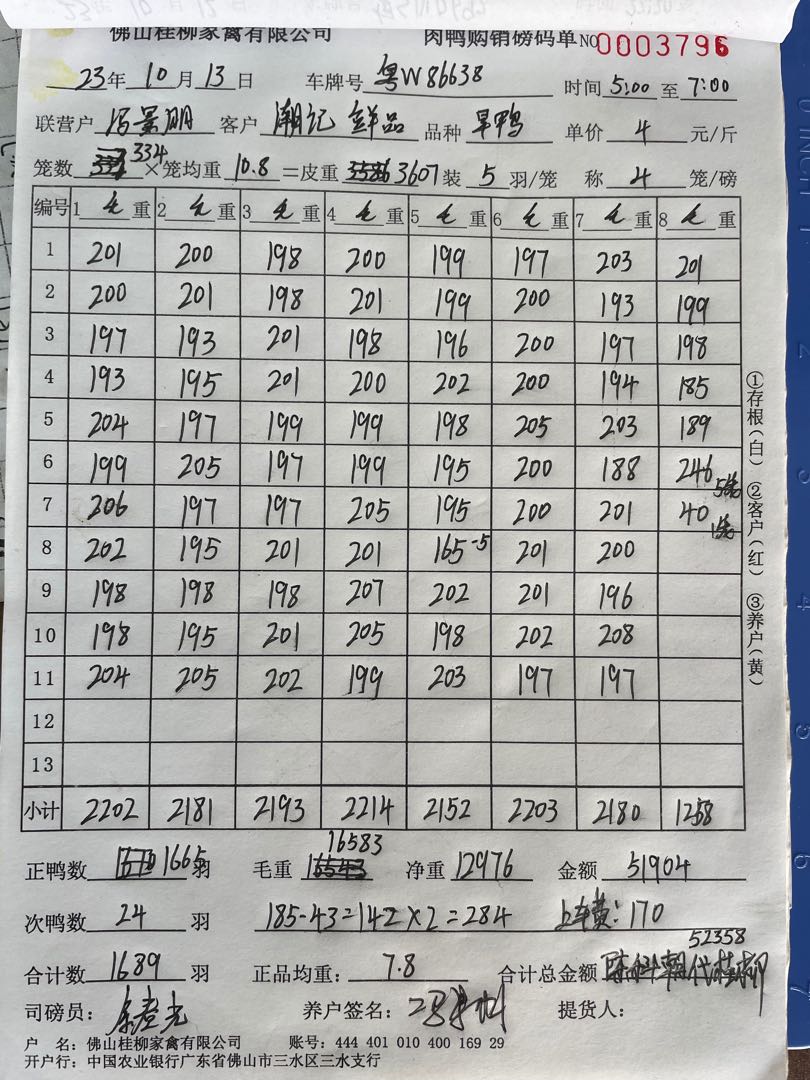 佛山桂柳家禽有限公司 肉鸭购销磅码单 NO 0003796
23年10月13日 车牌号 粤W86638 时间 5:00 至 7:00
联营户 冯景明 客户 潮记 鲜品 品种 旱鸭 单价 4 元/斤
笼数 334 ×笼均重 10.8 =皮重 3607 装 5 羽/笼 称 4 笼/磅
编号 1 毛 重 2 毛 重 3 毛 重 4 毛 重 5 毛 重 6 毛 重 7 毛 重 8 毛 重
1 201 200 198 200 199 197 203 201
2 200 201 198 201 199 200 193 199
3 197 193 201 198 196 200 197 198
4 193 195 201 200 202 200 194 185
5 204 197 199 199 198 205 203 189
6 199 205 197 199 195 200 188 246 5笼
7 206 197 197 205 195 200 201 40 1笼
8 202 195 201 201 165-5 201 200
9 198 198 198 207 202 201 196
10 198 195 201 205 198 202 208
11 204 205 202 199 203 197 197
12
13
小计 2202 2181 2193 2214 2152 2203 2180 1258
正鸭数 1665 羽 毛重 16583 净重 12976 金额 51904
次鸭数 24 羽 185-43=142×2=284 上车费:170
合计数 1689 羽 正品均重: 7.8 合计总金额 52358
司磅员: 养户签名: 提货人:
户 名: 佛山桂柳家禽有限公司 账号: 444 401 010 400 169 29
开户行: 中国农业银行广东省佛山市三水区三水支行
①存根(白) ②客户(红) ③养户(黄)